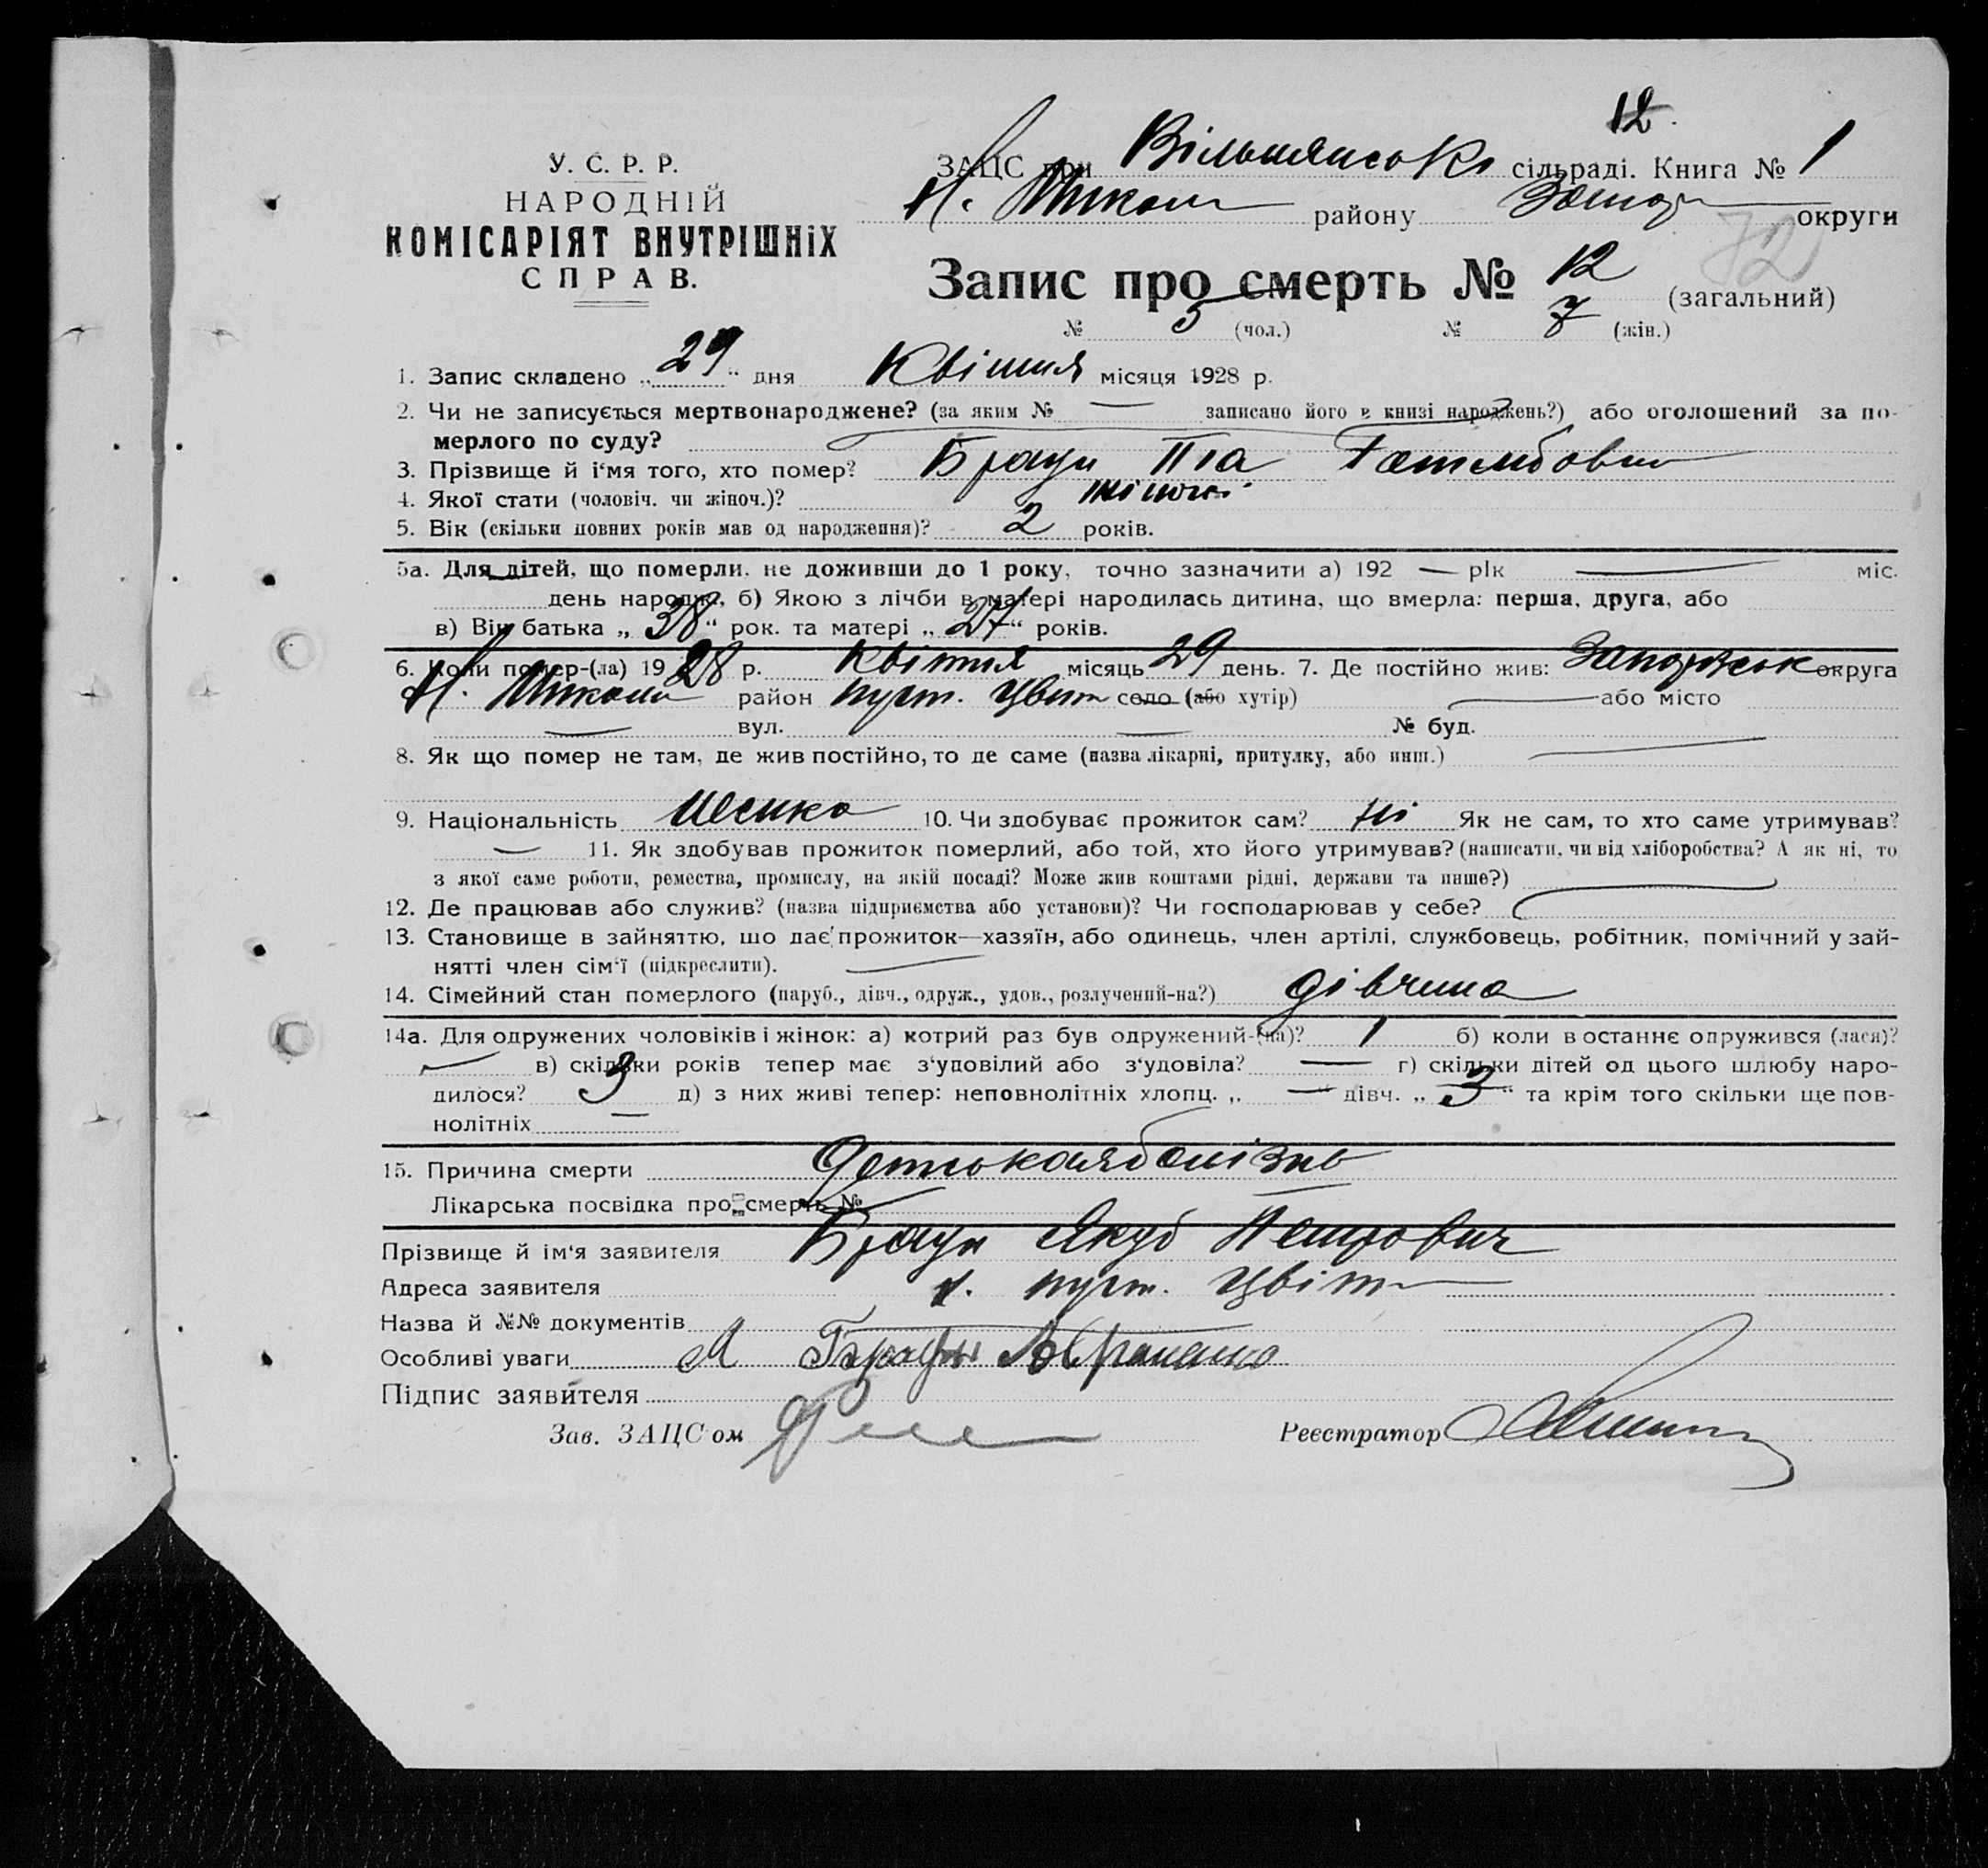 12
У. С. Р. Р.
НАРОДНІЙ
КОМІСАРІЯТ ВНУТРІШНІХ
СПРАВ.
ЗАЦС при Вільнянсько сільраді. Книга № 1
району округи
72
Запис про смерть № 12 (загальний)
№ 5 (чол.) № 7 (жін.)
1. Запис складено „ 29 “ дня Квітня місяця 1928 р.
2. Чи не записується мертвонароджене? (за яким № — записано його в книзі народжень?) або оголошений за по-
мерлого по суду?
3. Прізвище й і'мя того, хто помер? Браун
4. Якої стати (чоловіч. чи жіноч.)? жіночої
5. Вік (скільки повних років мав од народження)? 2 років.
5а. Для дітей, що померли, не доживши до 1 року, точно зазначити а) 192 — рік — міс.
день народж., б) Якою з лічби в матері народилась дитина, що вмерла: перша, друга, або
в) Вік батька „ 38 “ рок. та матері „ 27 “ років.
6. Коли помер-(ла) 1928 р. Квітня місяць 29 день. 7. Де постійно жив: Запоріжськ округа
район хут. Цвіт село (або хутір) — або місто
— вул. — № буд.
8. Як що помер не там, де жив постійно, то де саме (назва лікарні, притулку, або инш.) —
9. Національність немка 10. Чи здобуває прожиток сам? ні Як не сам, то хто саме утримував?
— 11. Як здобував прожиток померлий, або той, хто його утримував? (написати, чи від хліборобства? А як ні, то
з якої саме роботи, ремества, промислу, на якій посаді? Може жив коштами рідні, держави та инше?)
12. Де працював або служив? (назва підприємства або установи)? Чи господарював у себе?
13. Становище в зайняттю, що дає прожиток—хазяїн, або одинець, член артілі, службовець, робітник, помічний у зай-
нятті член сім'ї (підкреслити). —
14. Сімейний стан померлого (паруб., дівч., одруж., удов., розлучений-на?) дівчина
14а. Для одружених чоловіків і жінок: а) котрий раз був одружений-(на)? 1 б) коли в останнє одружився (лася)?
— в) скільки років тепер має з'удовілий або з'удовіла? — г) скільки дітей од цього шлюбу наро-
дилося? 3 д) з них живі тепер: неповнолітніх хлопц. „ — “ дівч. „ 3 “ та крім того скільки ще пов-
нолітніх —
15. Причина смерти детськая болізнь
Лікарська посвідка про смерть № —
Прізвище й ім'я заявителя Браун Якуб Петрович
Адреса заявителя хут. Цвіт
Назва й №№ документів
Особливі уваги Браун
Підпис заявителя
Зав. ЗАЦС'ом
Реєстратор